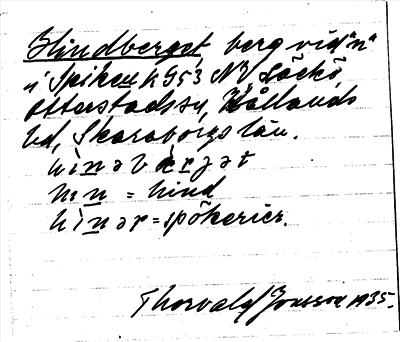 Hindberget, berg vid "n"
i Spiken K 953 NV Läckö
Otterstads sn, Kållands
hd, Skaraborgs län.
hìnəbærjət
hin = hind
hìnər = spökerier.
Thorvald Jonsson 1935.